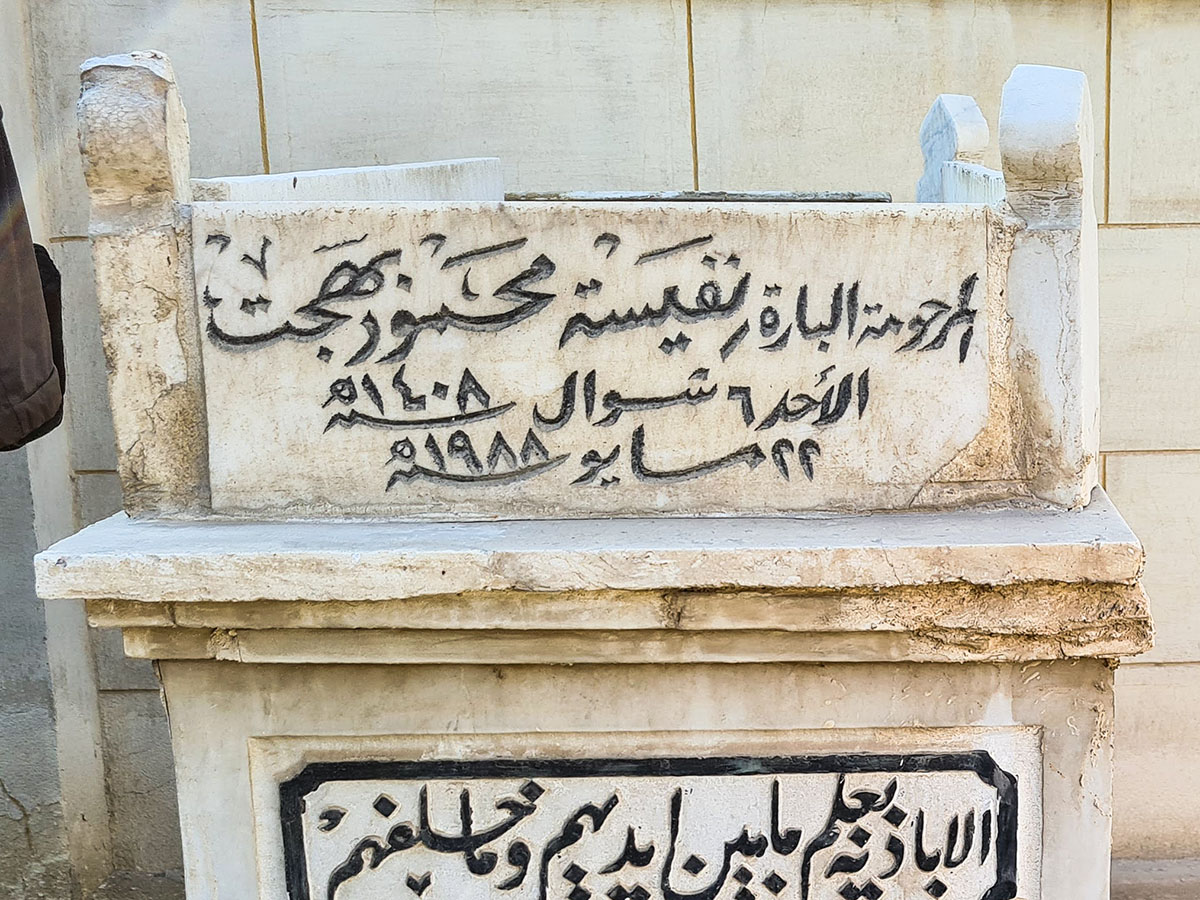 المرحومة البارة نفيسة محمد نور بهجت
الأحد ٦ شوال سنة ١٤٠٨ﻫ
٢٢ مايو سنة ١٩٨٨ﻫ
الا باذنه يعلم ما بين ايديهم وما خلفهم